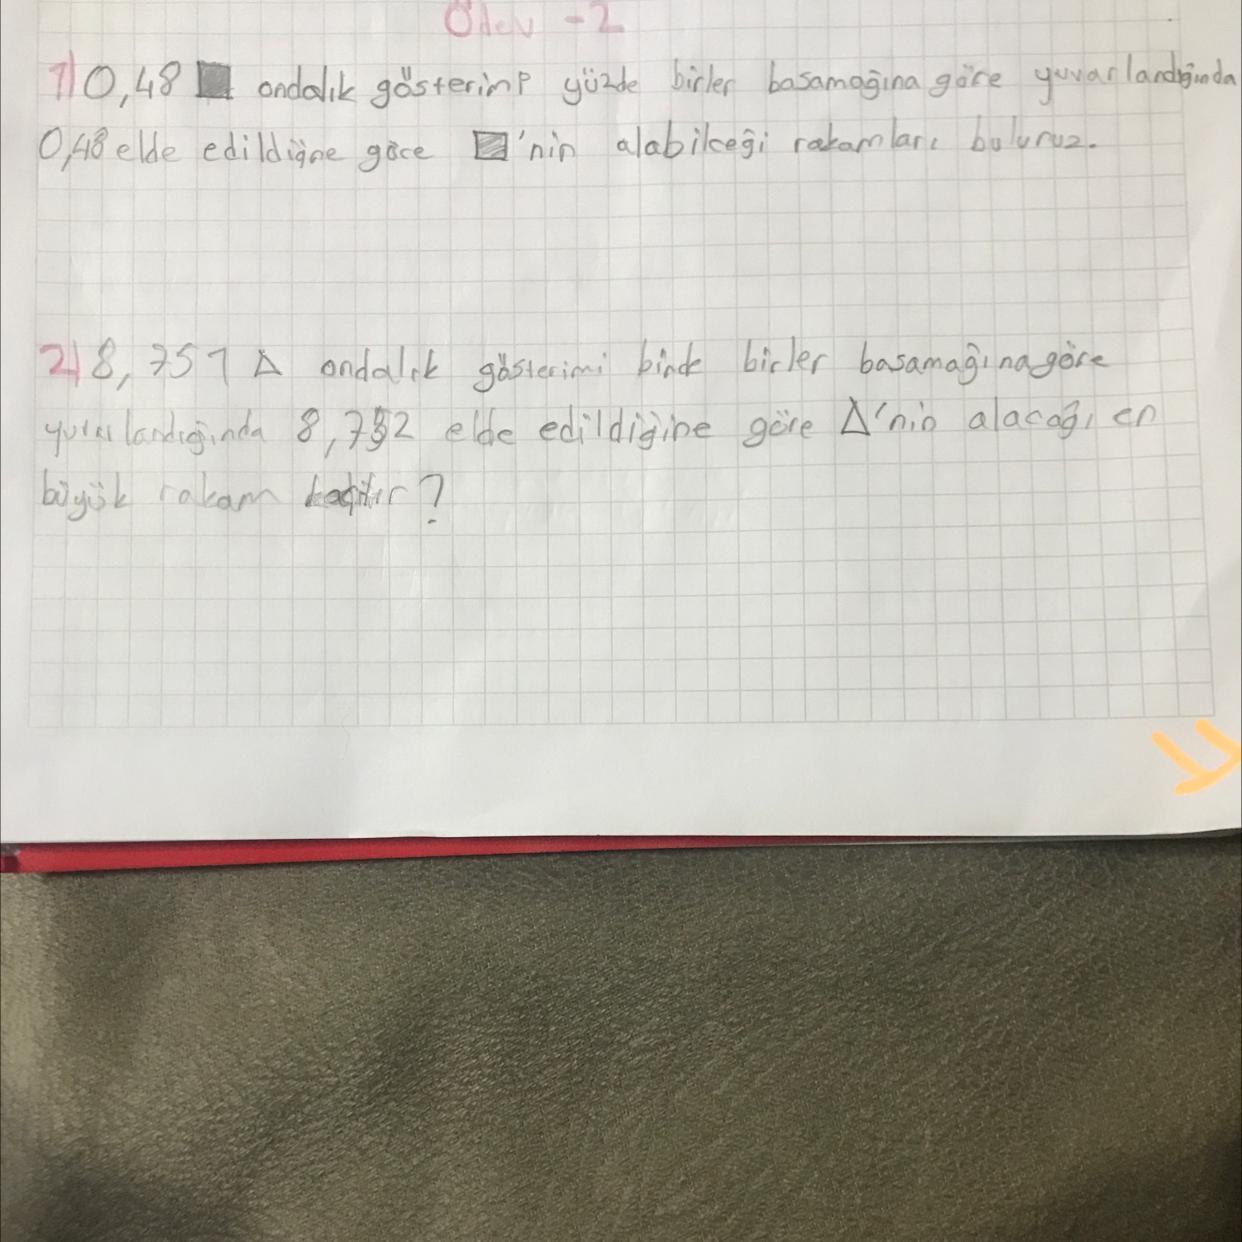 Ödev - 2
1) 0,48 ■ ondalık gösterimi yüzde birler basamağına göre yuvarlandığında
0,48 elde edildiğine göre ■'nin alabilceği rakamları bulunuz.
2) 8,751 Δ ondalık gösterimi binde birler basamağına göre
yuvarlandığında 8,752 elde edildiğine göre Δ'nin alacağı en
büyük rakam kaçtır?